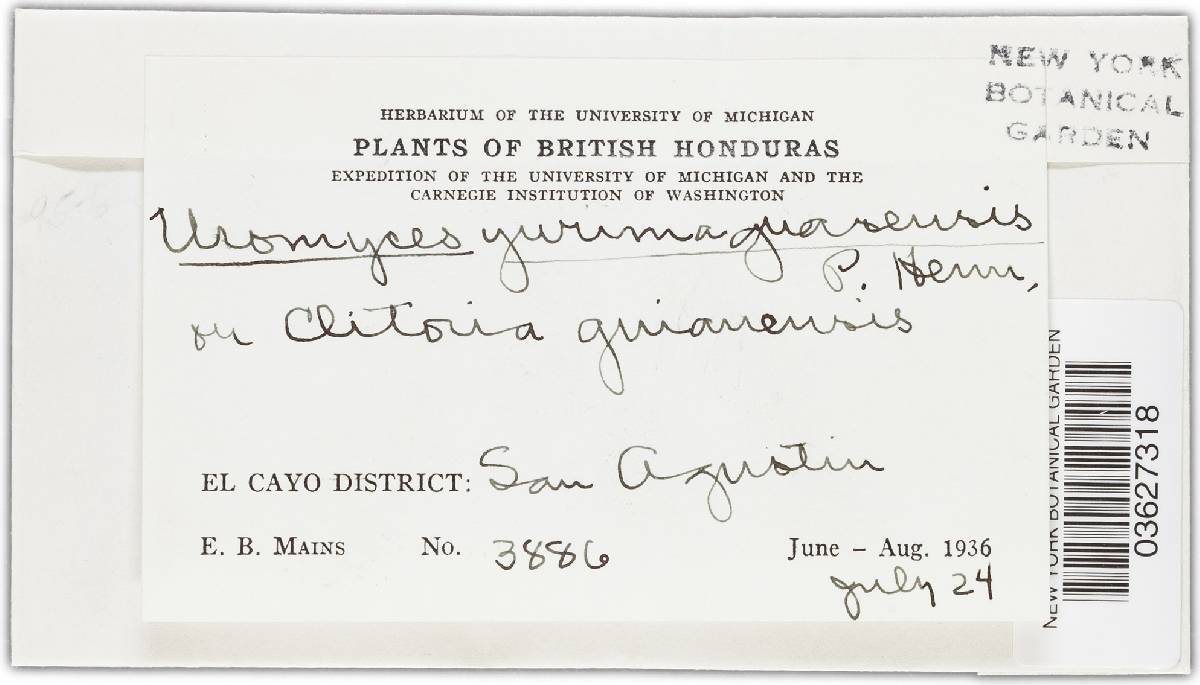 NEW YORK
BOTANICAL
GARDEN
HERBARIUM OF THE UNIVERSITY OF MICHIGAN
PLANTS OF BRITISH HONDURAS
EXPEDITION OF THE UNIVERSITY OF MICHIGAN AND THE
CARNEGIE INSTITUTION OF WASHINGTON
Uromyces yurimaguasensis
P. Henn,
on Clitoria guianensis
EL CAYO DISTRICT: San Agustin
E. B. MAINS No. 3886 June - Aug. 1936
July 24
NEW YORK BOTANICAL GARDEN
03627318